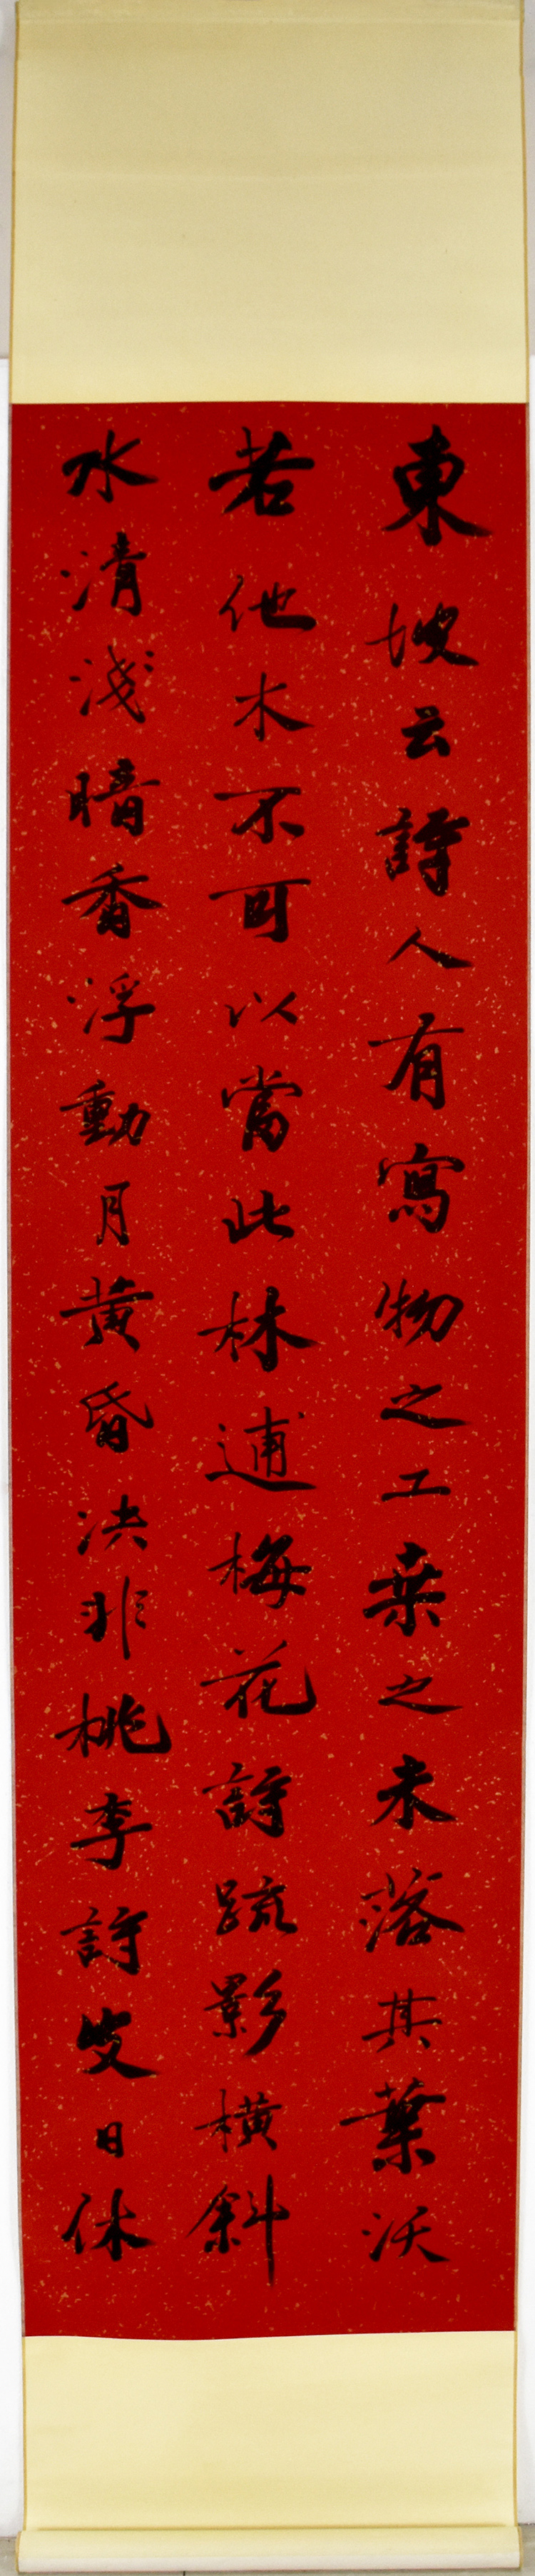 東坡云詩人有寫物之工桑之未落其葉沃
若他木不可以當此林逋梅花詩疏影橫斜
水清淺暗香浮動月黃昏決非桃李詩皮日休